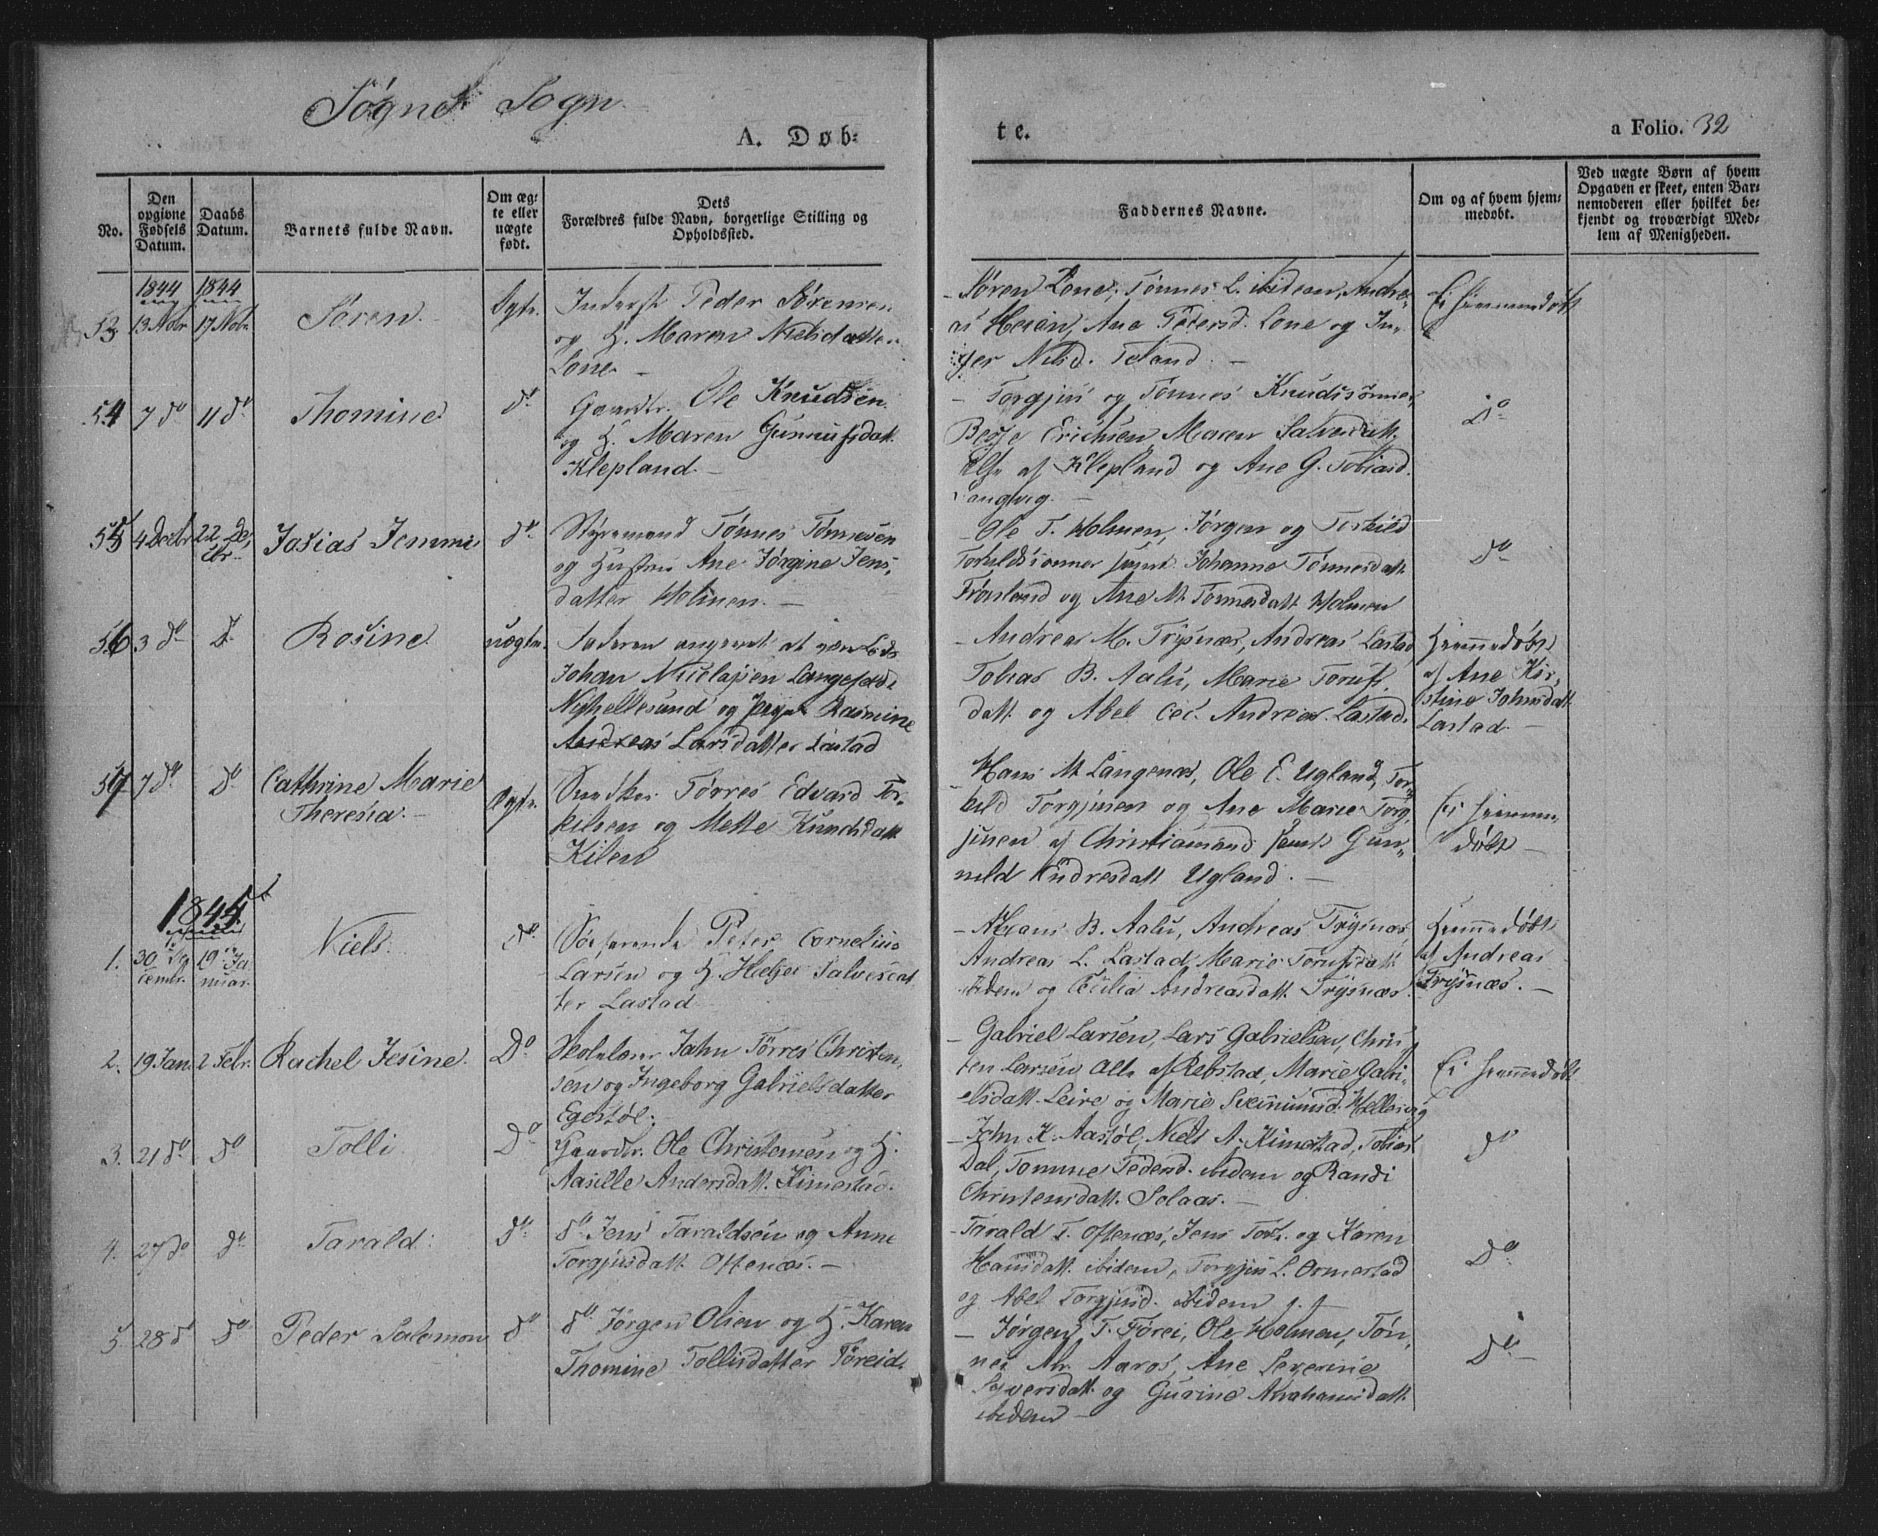 Søgne Sogn
A. Døb-
te.
a Folio. 32
No.
Den opgivne Fødsels Datum.
Daabs Datum.
Barnets fulde Navn.
Om æg-
te eller
uægte
født.
Dets
Forældres fulde Navn, borgerlige Stilling og
Opholdssted.
Faddernes Navne.
Om og af hvem hjem-
medøbt.
Ved uægte Børn af hvem
Opgaven er skeet, enten Bar-
nemoderen eller hvilket be-
kjendt og troværdigt Med-
lem af Menigheden.
1844 1844
53 13 Nobr 17 Nobr. Søren. Ægte.
Inderst Peder Sørensen
og H. Maren Nielsdatter
Lone. —
— Søren Lone, Tønnes L. ibidem, Andre-
as Høien, Ane Pedersd. Lone og In-
ger Nilsd. Toland. —
Ei hjemmedøbt
54 7 do 11 do Thomine do
Gaardbr. Ole Knudsen
og H. Maren Gunnufsdatt.
Klepland. —
— Torgjus og Tønnes Knudssønner,
Berge Erichsen, Maren Salvesdatt.
alle af Klepland og Ane G. Tobiasd.
Langvig. —
Do
55 4 Decbr 22 De-
cbr. Josias Jemmi do
Styrmand Tønnes Tønnesen
og Hustru Ane Jørgine Jens-
datter Holmen. —
— Ole T. Holmen, Jørgen og Terkild
Terkildssønner samt Johanne Tønnesdatt.
Frøsland og Ane M. Tønnesdatt. Holmen
Do
56 3 do D. Rosine uægte.
Faderen angivet at være Lods
Johan Nicolaisen Langefeldt
Ny Hellesund og Pigen Rasmine
Andreas Larsdatter Lastad
— Andreas M. Trysnæs, Andreas Lastad
Tobias B. Aalu, Marie Torufs-
datt. og Abel Cec. Andreasd. Lastad.
Hjemmedøbt
af Ane Kir-
stine Johnsdatt.
Lastad. —
57 7 do Do Cathrine Marie
Theresia. — Ægte.
Snedker Tørres Edvard Tor-
kilsen og Mette Knudsdatt.
Kilen
— Hans M. Langenæs, Ole E. Ugland, Tor-
kild Torgjusen og Ane Marie Torg-
jusen af Christiansand samt Gun-
nild Andresdatt. Ugland. —
Ei hjemme-
døbt —
1845
1. 30 De-
cembr. 19 Ja-
nuar. Niels. do
Søefarende Peter Cornelius
Larsen og H. Helje Salvesdat-
ter Lastad
— Hans B. Aalu, Andreas Trysnæs,
Andreas L. Lastad, Marie Torufsdatt.
ibidem og Cecilia Andreasdatt. Trysnæs.
Hjemmedøbt
af Andreas
Trysnæs. —
2. 19 Jan. 2 Febr. Rachel Jesine. Do
Skolelærer Jahn Tørres Christen-
sen og Ingeborg Gabrielsdatter
Egestøl.
— Gabriel Larsen, Lars Gabrielsen, Chris-
ten Larsen Alle af Rebstad, Marie Gabri-
elsdatt. Leire og Marie Sveinumsd. Hellevig
Ei hjemmedøbt
3. 21 do do Tolli. Do
Gaardbr. Ole Christensen og H.
Aasille Andersdatt. Kimestad.
— John K. Aastøl, Niels A. Kimestad, Tobias
Dal, Tomine Pedersd. ibidem og Randi
Christensdatt. Solaas. —
do
4. 27 do do Tarald. do
do Jens Taraldsen og Anne
Torgjusdatt. Oftenæs. —
— Tarald T. Oftenæs, Jens Tor. og Karen
Hansdatt. ibidem, Torgjus L. Ormestad
og Abel Torgjusd. ibidem
Do
5. 28 do do Peder Salemon do
do Jørgen Olsen og H. Karen
Thomine Tollisdatter Tøreid.
— Jørgen T. Føreid, Ole Holmen, Tøn-
nes Ar. Aaros, Ane Severine
Syversdatt. og Gurine Abrahamsdatt.
ibidem —
Do —